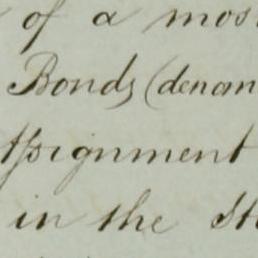 of a mos
Bonds (denom
Assignment
in the St